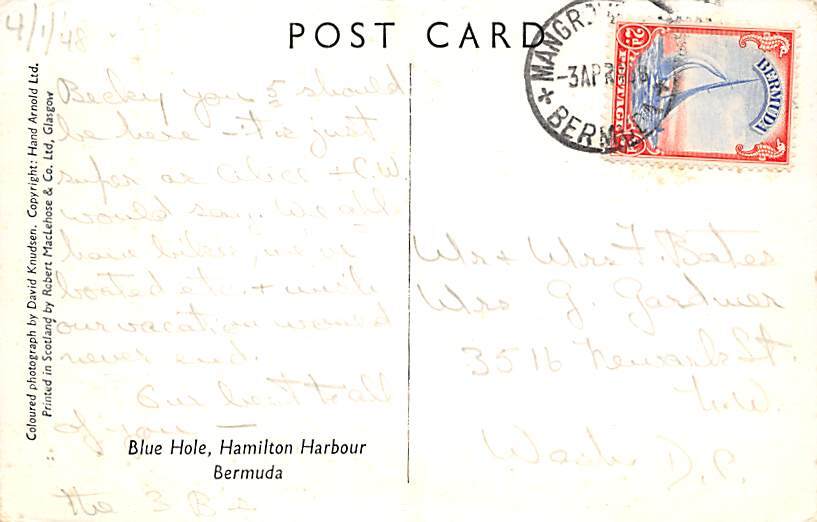 4/1/48
POST CARD
MANGR
-3 APR
BERMUDA
2d
BERMUDA
POSTAGE
Coloured photograph by David Knudsen. Copyright: Hand Arnold Ltd.
Printed in Scotland by Robert MacLehose & Co. Ltd, Glasgow
Becky you 5 should
be here - it is just
super as Alice + C.W.
would say. We all
have bikes, we've
boated etc. + wish
our vacation would
never end.
Our best to all
of you —
the 3 B's
Blue Hole, Hamilton Harbour
Bermuda
Mr + Mrs F. Bates
Mrs G. Gardner
3516 Newark St.
N.W.
Wash D.C.